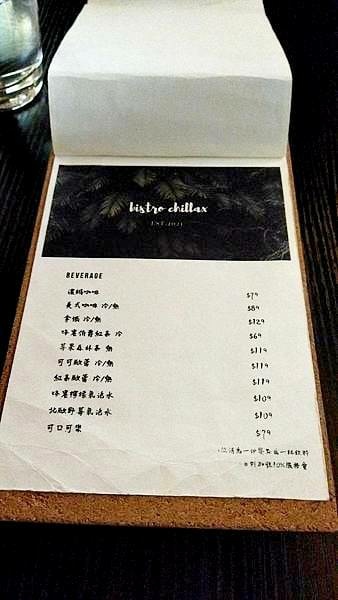 bistro chillax
EST.2021
BEVERAGE
濃縮咖啡 $79
美式咖啡 冷/熱 $89
拿鐵 冷/熱 $129
蜂蜜伯爵紅茶 冷 $69
莓果森林茶 熱 $119
可可歐蕾 冷/熱 $119
紅茶歐蕾 冷/熱 $119
蜂蜜檸檬氣泡水 $109
北歐野莓氣泡水 $109
可口可樂 $79
10%服務費